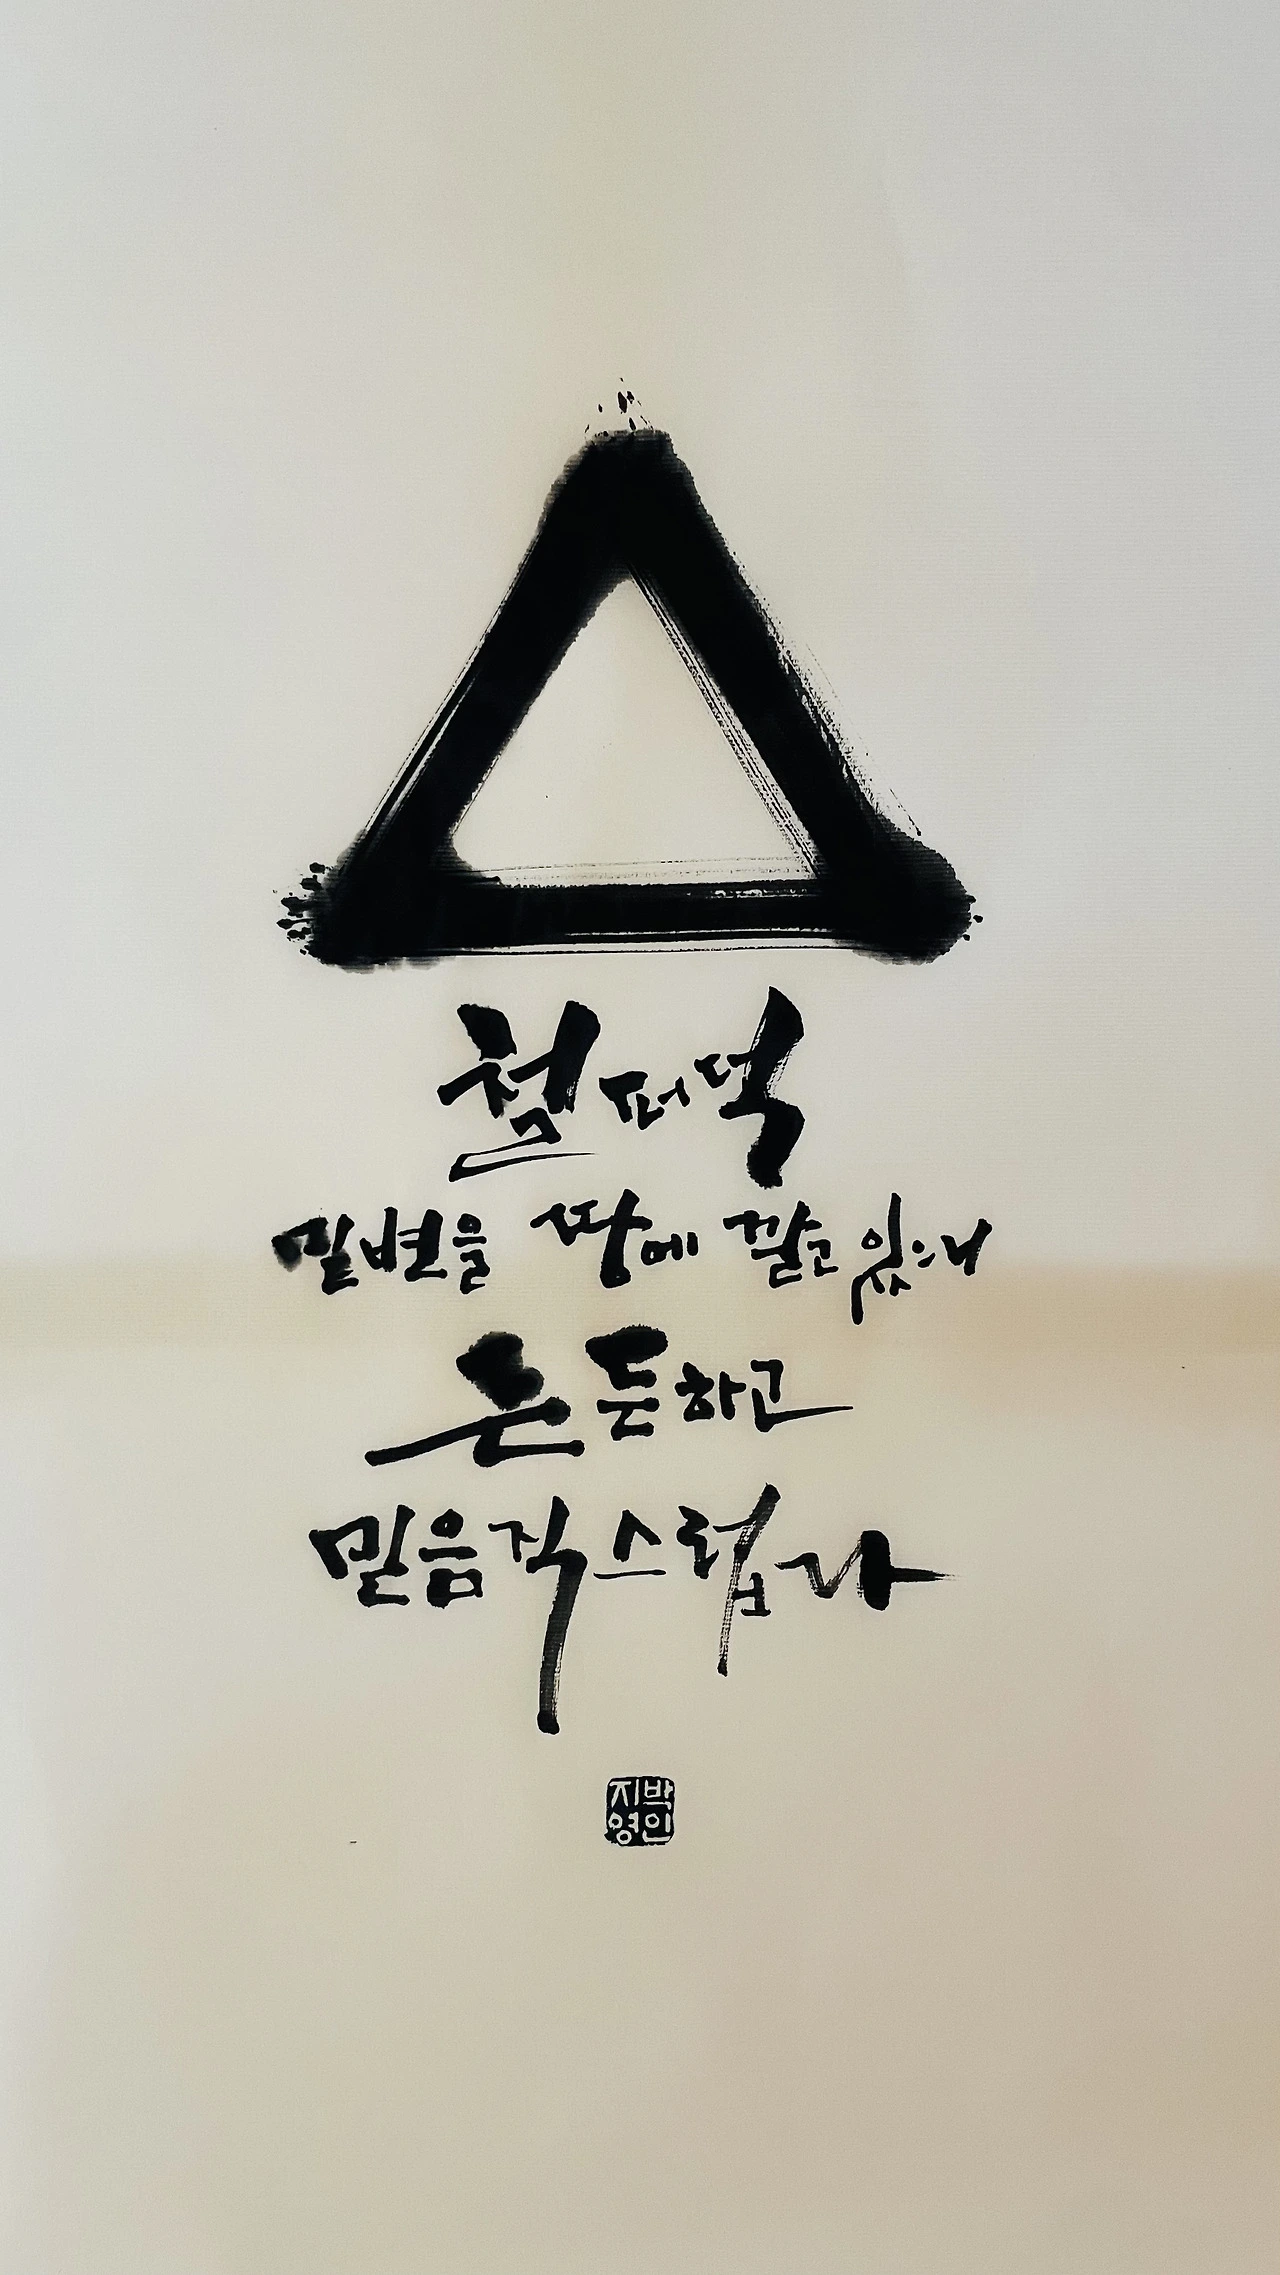 철퍼덕
밑변을 땅에 깔고 있으니
든든하고
믿음직스럽다
박인
지영